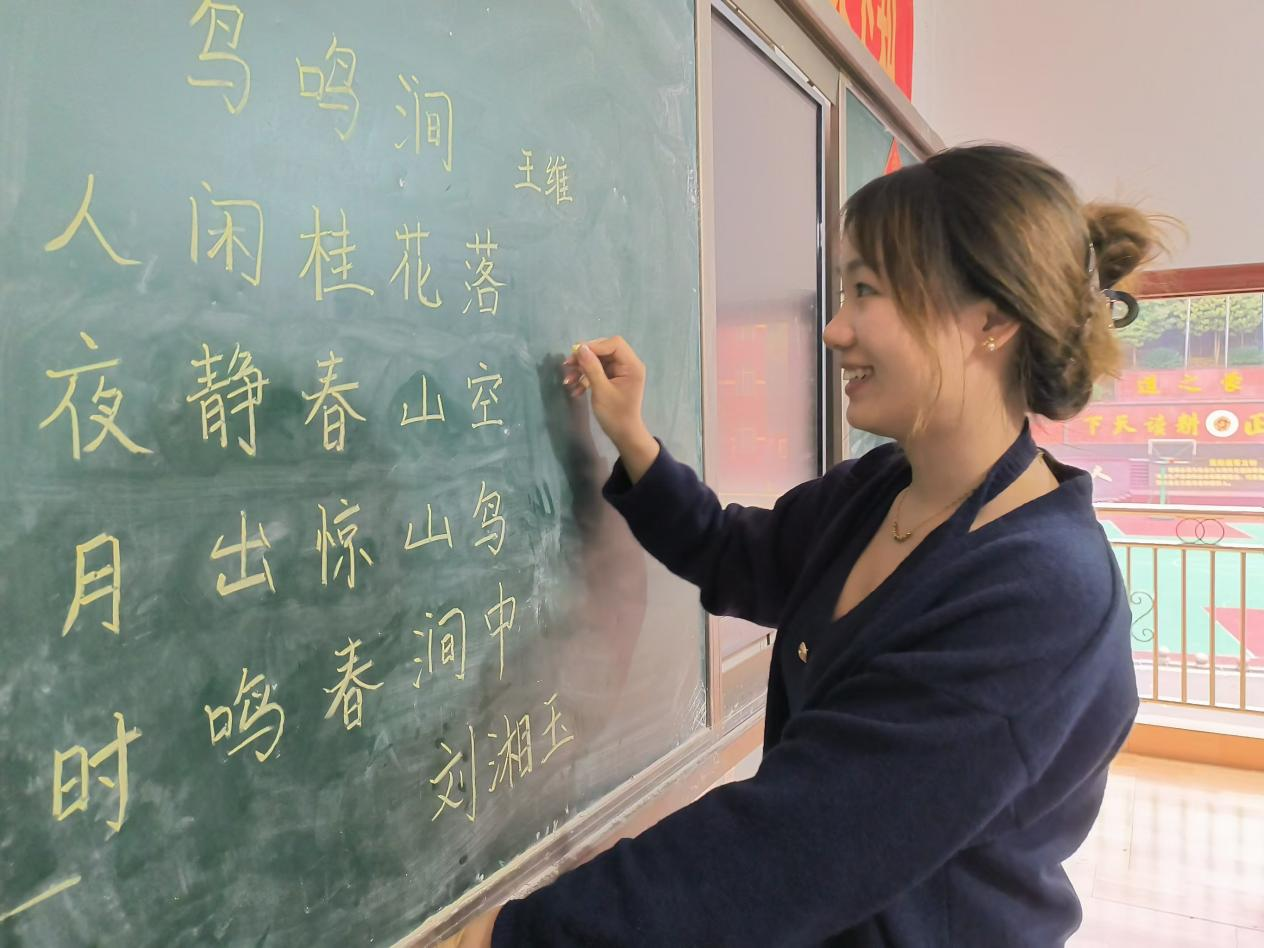 鸟鸣涧
王维
人闲桂花落
夜静春山空
月出惊山鸟
时鸣春涧中
刘湘玉
耕读天下